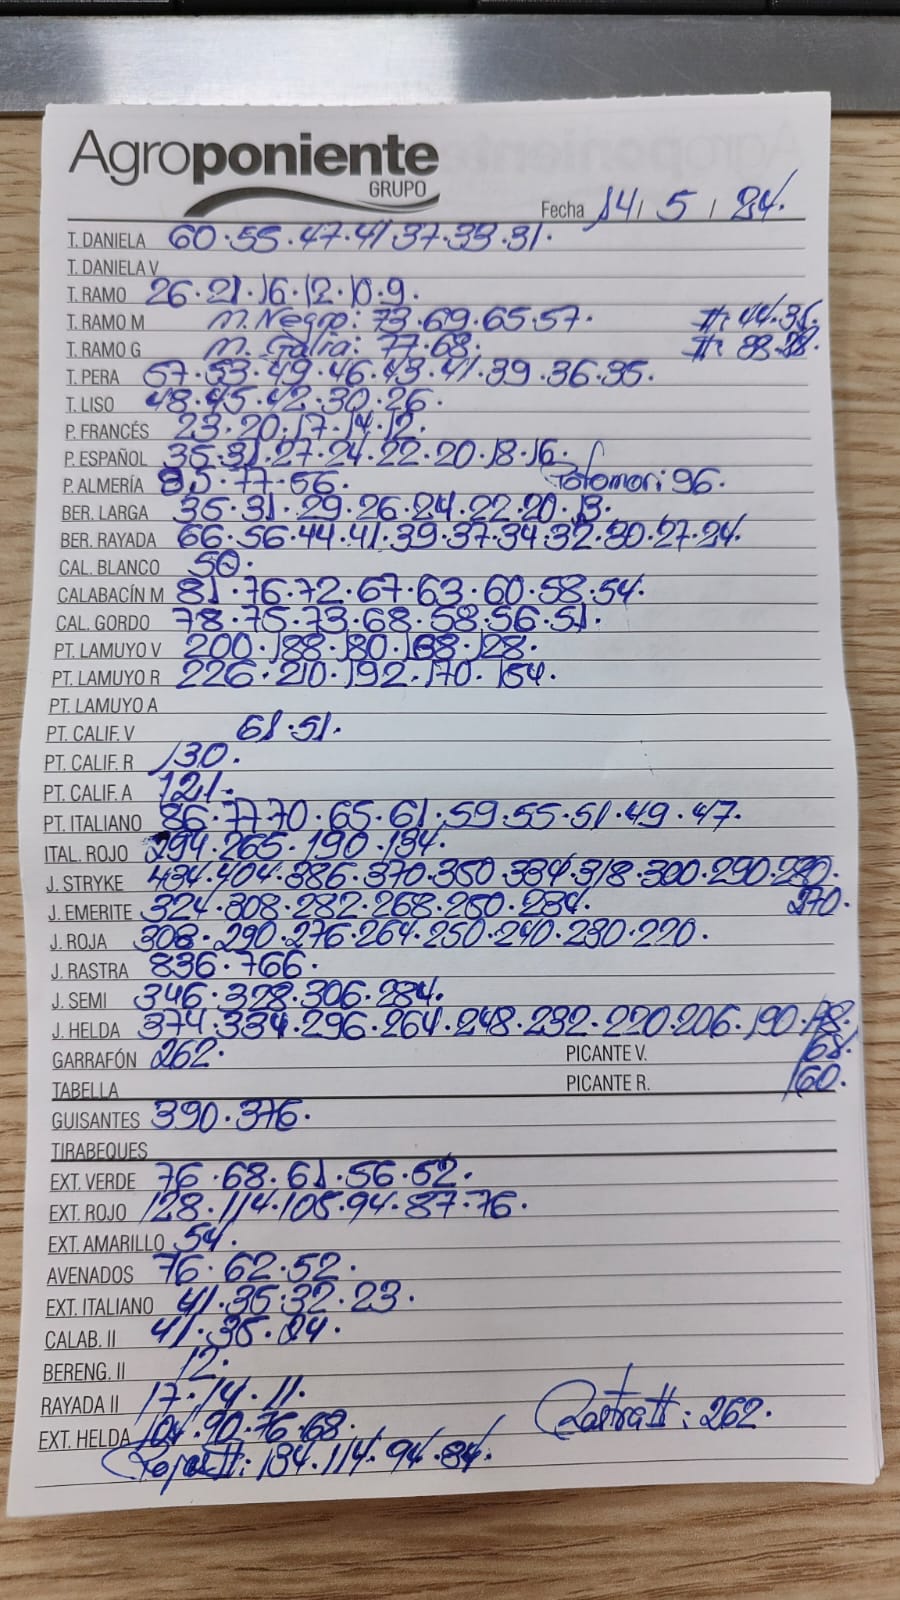 Agroponiente
GRUPO
Fecha 14 / 5 / 24.
T. DANIELA 60.55.47.41.37.33.31.
T. DANIELA V
T. RAMO 26.21.16.12.10.9.
T. RAMO M M. Negro: 73.69.65.57. II: 44.35.
T. RAMO G M. Galia: 77.68. II: 38.28.
T. PERA 67.53.49.46.43.41.39.36.35.
T. LISO 48.45.42.30.26.
P. FRANCÉS 23.20.17.14.12.
P. ESPAÑOL 35.31.27.24.22.20.18.16.
P. ALMERÍA 85.77.56. Totomori 96.
BER. LARGA 35.31.29.26.24.22.20.13.
BER. RAYADA 66.56.44.41.39.37.34.32.30.27.24.
CAL. BLANCO 50.
CALABACÍN M 81.76.72.67.63.60.58.54.
CAL. GORDO 78.75.73.68.58.56.51.
PT. LAMUYO V 200.188.180.168.128.
PT. LAMUYO R 226.210.192.170.154.
PT. LAMUYO A
PT. CALIF. V 61.51.
PT. CALIF. R 130.
PT. CALIF. A 121.
PT. ITALIANO 86.77.70.65.61.59.55.51.49.47.
ITAL. ROJO 294.265.190.134.
J. STRYKE 434.404.386.370.350.334.318.300.290.280.
J. EMERITE 324.308.282.268.250.234. 270.
J. ROJA 308.290.276.264.250.240.230.220.
J. RASTRA 836.766.
J. SEMI 346.328.306.284.
J. HELDA 374.334.296.264.248.232.220.206.190.
GARRAFÓN 262. PICANTE V. 168.
TABELLA PICANTE R. 160.
GUISANTES 390.376.
TIRABEQUES
EXT. VERDE 76.68.61.56.52.
EXT. ROJO 128.114.105.94.87.76.
EXT. AMARILLO 54.
AVENADOS 76.62.52.
EXT. ITALIANO 41.35.32.23.
CALAB. II 41.35.24.
BERENG. II 12.
RAYADA II 17.14.11.
EXT. HELDA 104.90.76.68. Rastra II: 262.
Roja II: 134.114.94.84.